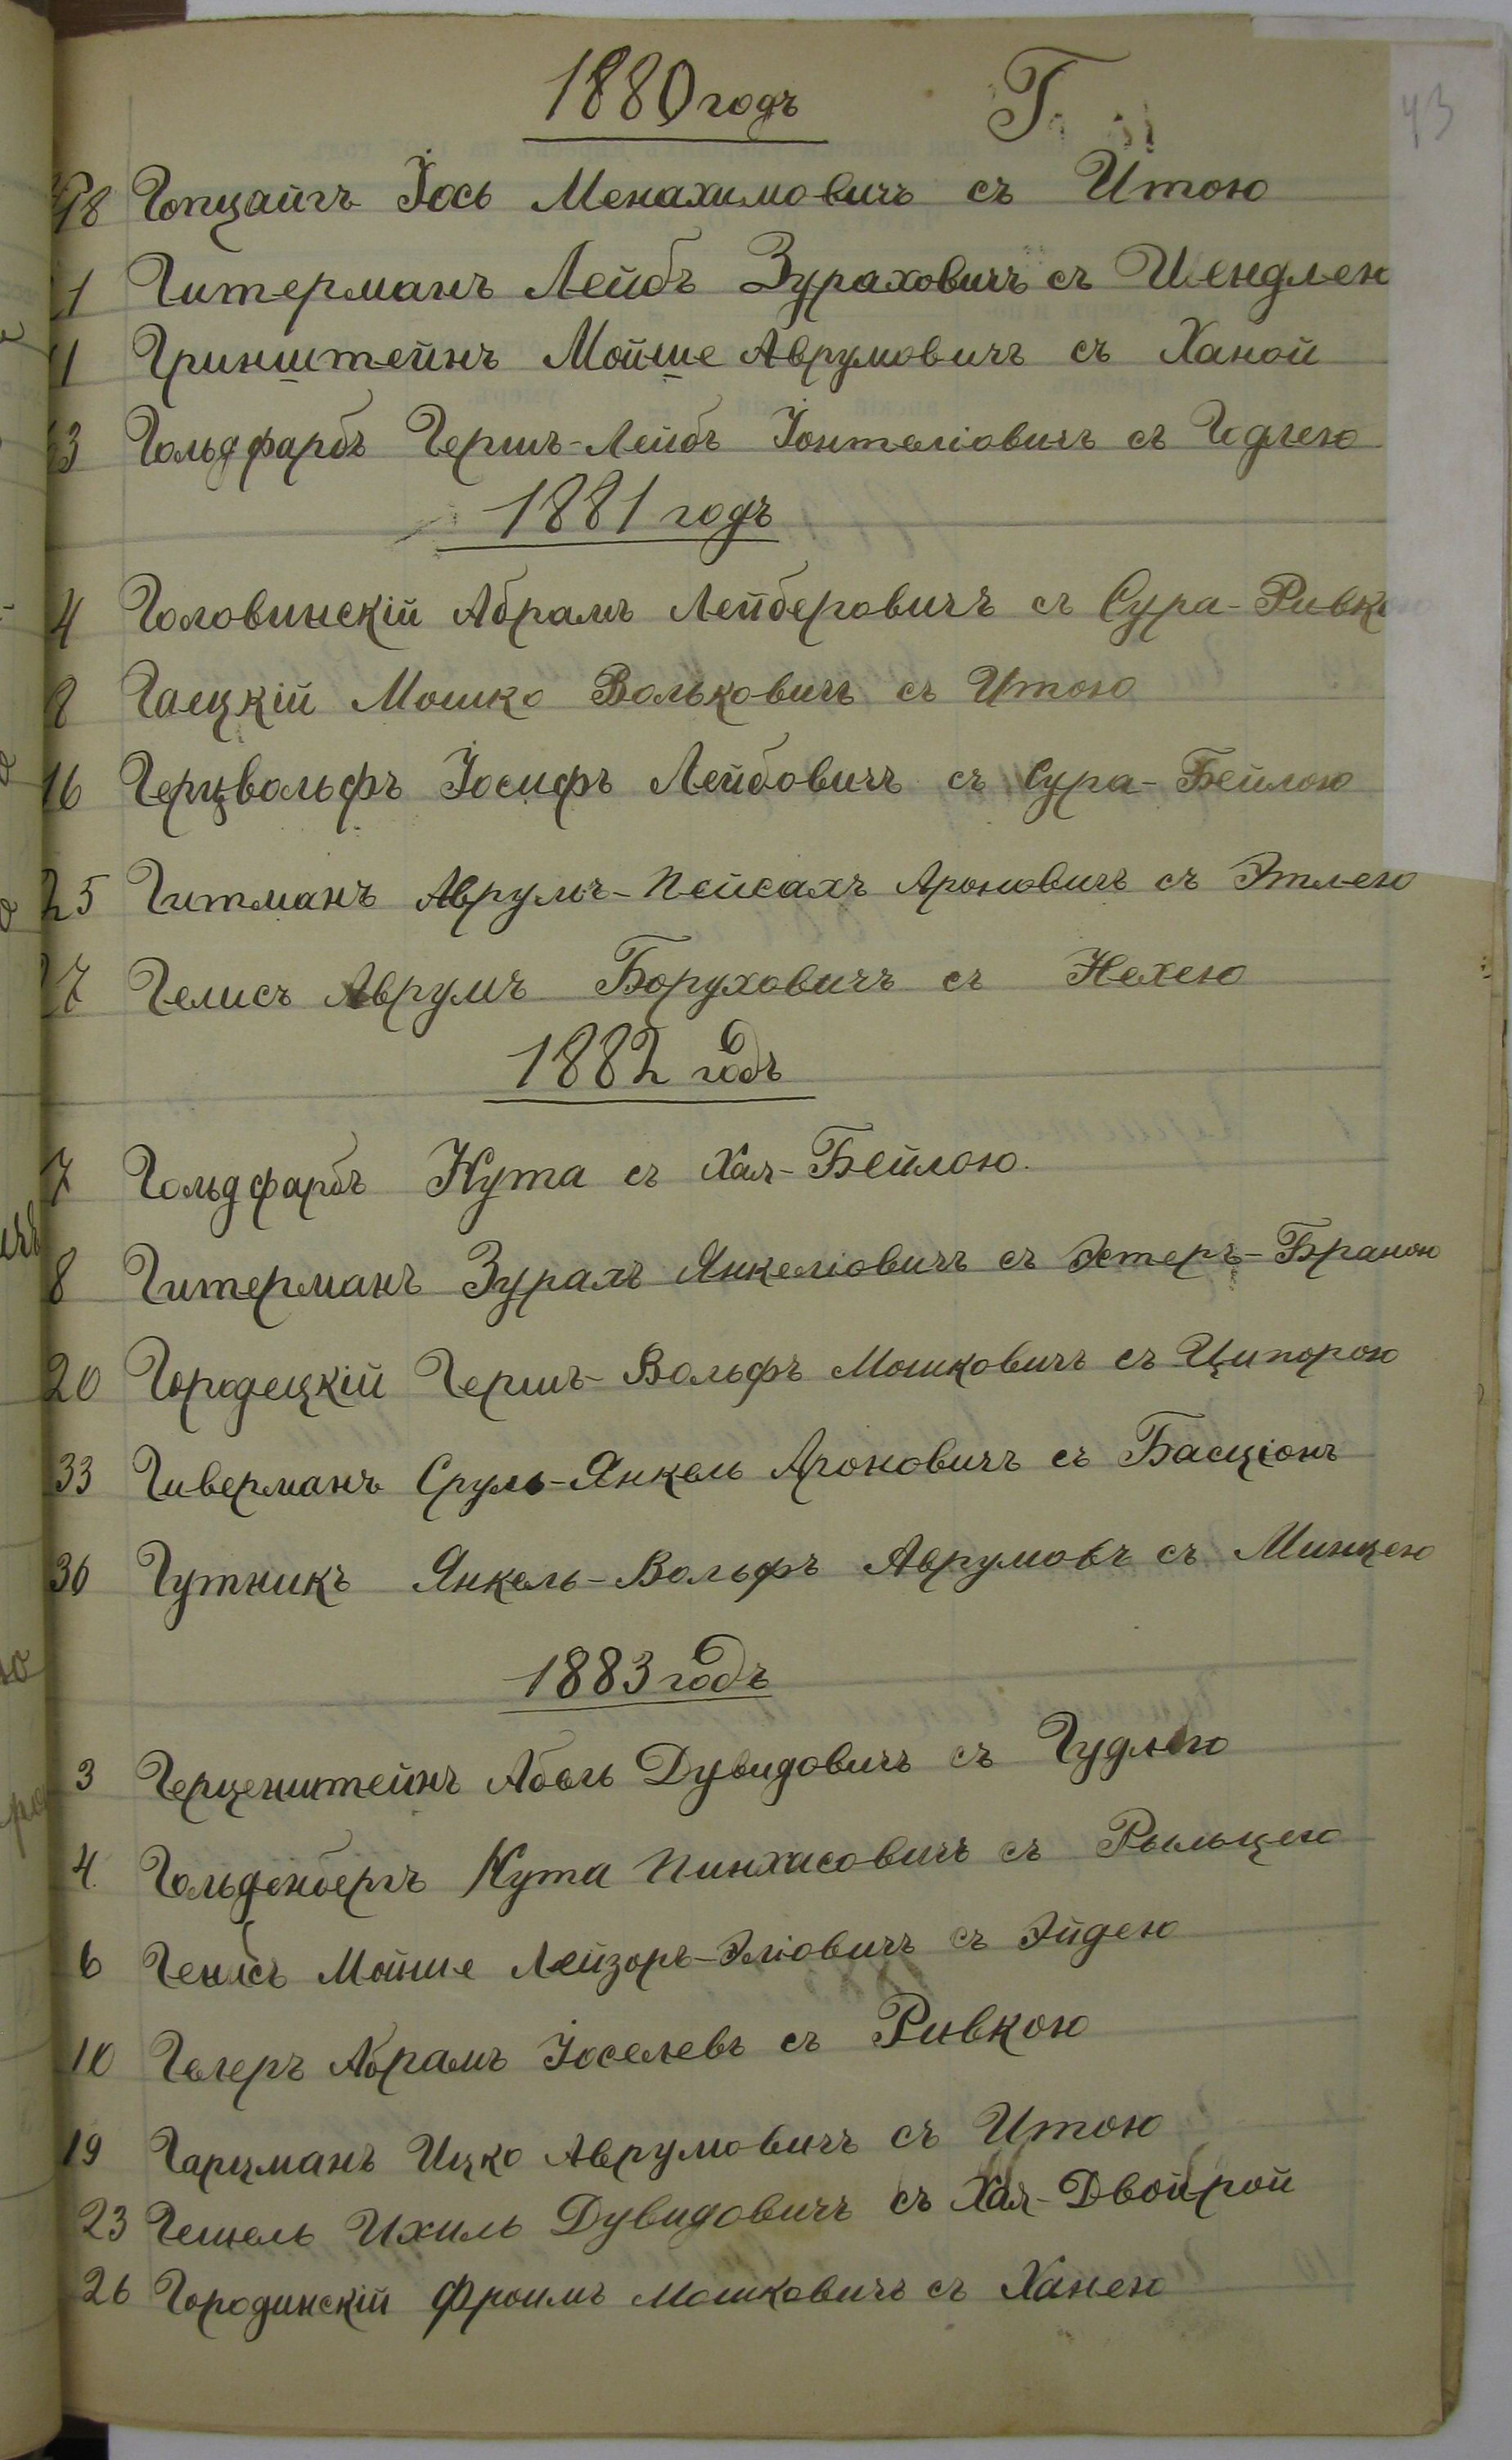 1880 годъ Г.
43
18 Гопцайгъ Іось Менахимовичъ съ Итою
1 Гитерманъ Лейбъ Зураховичъ съ Шендлею
1 Гринштейнъ Мойше Аврумовичъ съ Ханой
3 Гольдфарбъ Гершъ-Лейбъ Іонтеліовичъ съ Годлею
1881 годъ
4 Головинскій Абрамъ Лейберовичъ съ Сура-Ривкою
8 Гаецкій Мошко Вольковичъ съ Итою
16 Герцвольфъ Іосифъ Лейбовичъ съ Сура-Бейлою
25 Гитманъ Аврумъ-Пейсахъ Ароновичъ съ Этлею
27 Гелисъ Аврумъ Боруховичъ съ Нехею
1882 годъ
7 Гольдфарбъ Нута съ Хая-Бейлою.
8 Гитерманъ Зурахъ Янкеліовичъ съ Эстеръ-Браною
20 Городецкій Гершъ-Вольфъ Мошковичъ съ Ципорою
33 Гиверманъ Сруль-Янкель Ароновичъ съ Басціонъ
36 Гутникъ Янкель-Вольфъ Аврумовъ съ Минцею
1883 годъ
3 Герценштейнъ Абель Дувидовичъ съ Гудлею
4. Гольденбергъ Нута Пинхасовичъ съ Рыльцею
6 Генисъ Мойше Лейзоръ-Эліовичъ съ Эйдею
10 Гегеръ Абрамъ Іоселевъ съ Ривкою
19 Гарцманъ Ицко Аврумовичъ съ Итою
23 Гешель Ихиль Дувидовичъ съ Хая-Двойрой
26 Городинскій Фроимъ Мошковичъ съ Ханею